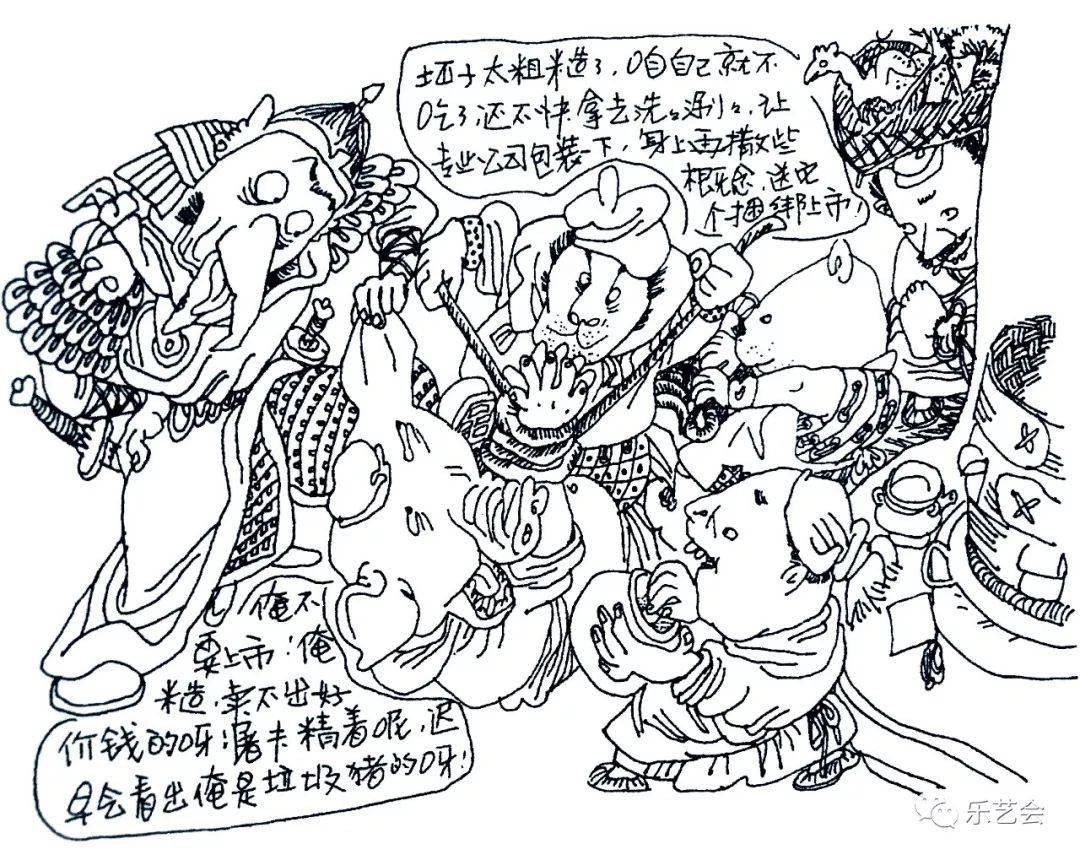 坯子太粗糙了,咱自己就不
吃了,还不快拿去洗々涮々,让
专业公司包装一下,身上再撒些
概念,送它
个捆绑上市!
俺不
要上市!俺
糙,卖不出好
价钱的呀!屠夫精着呢,迟
早会看出俺是垃圾猪的呀!
乐艺会